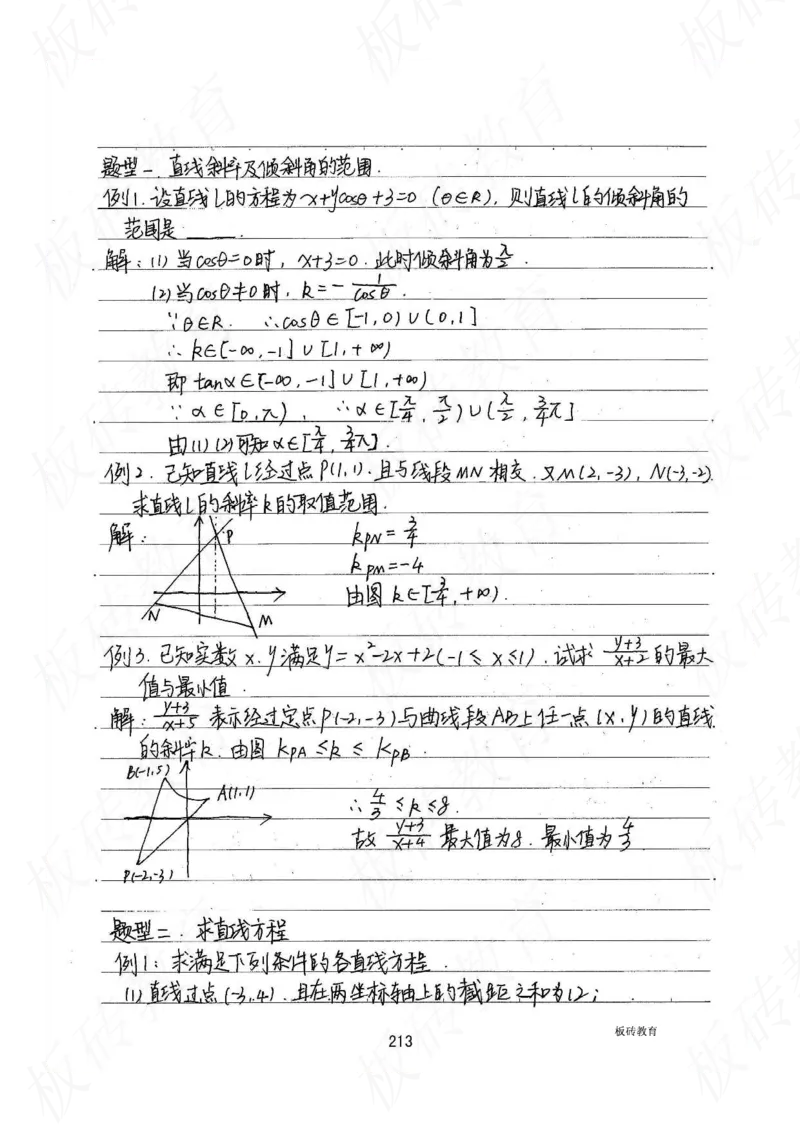 题型一. 直线斜率及倾斜角的范围.
例1. 设直线l的方程为x+ycosθ+3=0 (θ∈R), 则直线l的倾斜角的
范围是____.
解: (1) 当cosθ=0时, x+3=0. 此时倾斜角为π/2.
(2) 当cosθ≠0时, k=-1/cosθ.
∵θ∈R. ∴cosθ∈[-1,0)∪(0,1]
∴ k∈[-∞,-1]∪[1,+∞)
即 tanα∈[-∞,-1]∪[1,+∞)
∵ α∈[0,π), ∴α∈[π/4, π/2)∪(π/2, 3/4π]
由(1)(2)可知α∈[π/4, 3/4π].
例2. 已知直线l经过点P(1,1). 且与线段MN相交. 又M(2,-3), N(-3,-2).
求直线l的斜率k的取值范围.
解:
P
N
M
kPN=3/4
kPM=-4
由图 k∈[3/4,+∞).
例3. 已知实数x.y满足y=x²-2x+2(-1≤x≤1). 试求 y+3/x+2 的最大
值与最小值.
解: y+3/x+5 表示经过定点P(-2,-3)与曲线段AB上任一点(x,y)的直线
的斜率k. 由图 KPA≤k≤KPB.
B(-1,5)
A(1,1)
P(-2,-3)
∴ 4/3≤k≤8.
故 y+3/x+4 最大值为8. 最小值为4/3
题型二. 求直线方程
例1: 求满足下列条件的各直线方程.
(1) 直线过点(-3,4). 且在两坐标轴上的截距之和为12;
板砖教育
213